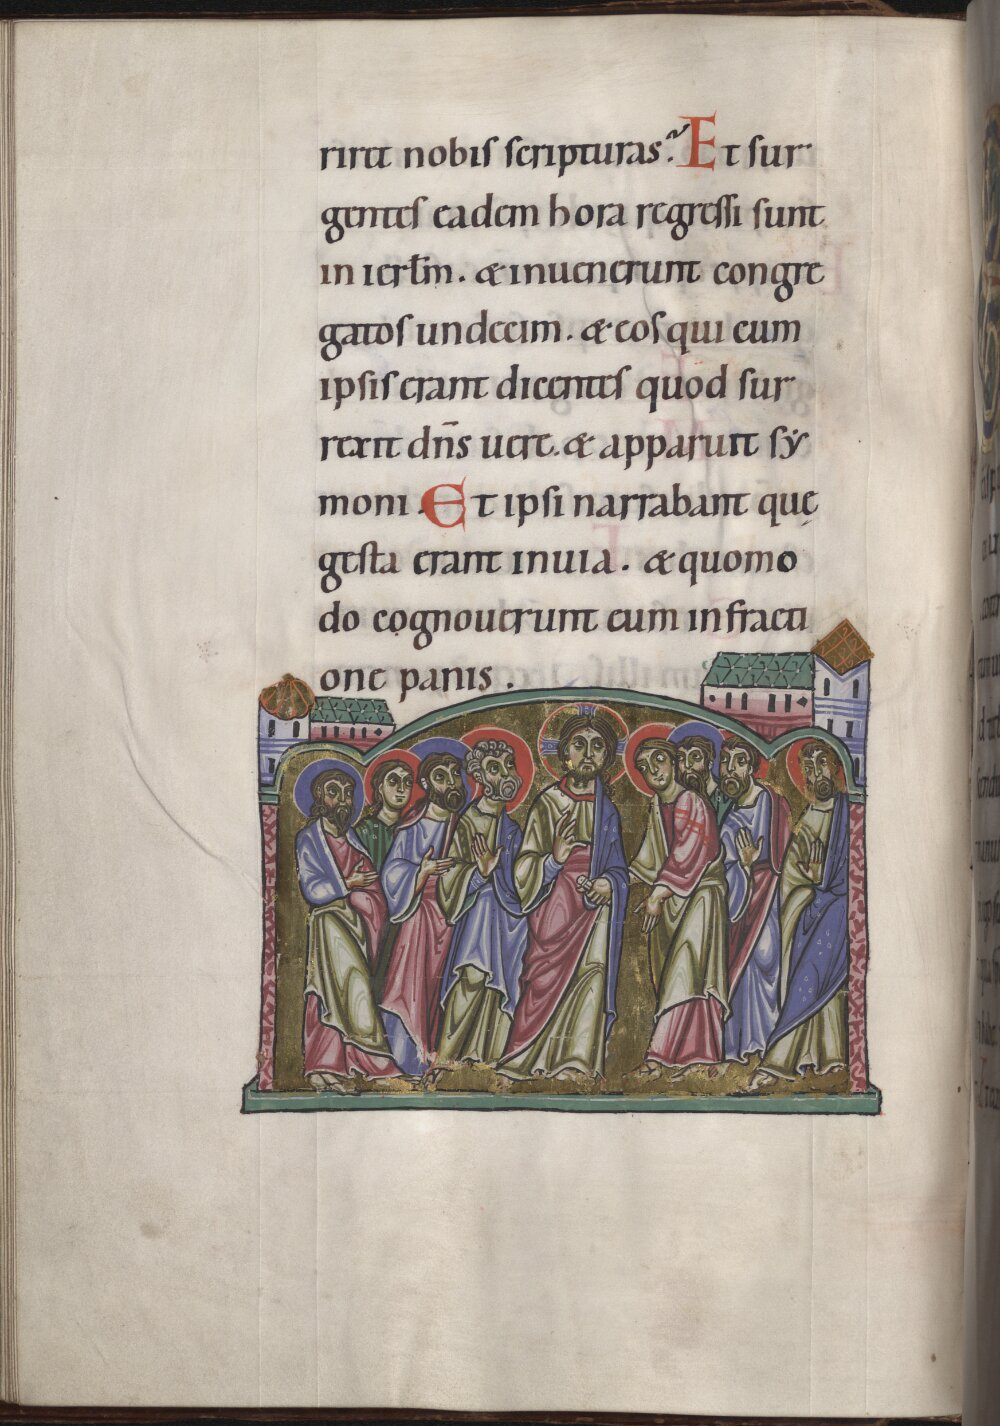 riret nobis scripturas? Et sur
gentes eadem hora regressi sunt
in ierłm. & inuenerunt congre
gatos undecim. & eos qui cum
ipsis erant dicentes quod sur
rexit dn̄s uere. & apparuit sẏ
moni. Et ipsi narrabant quę
gesta erant inuia. & quomo
do cognouerunt eum infracti
one panis.